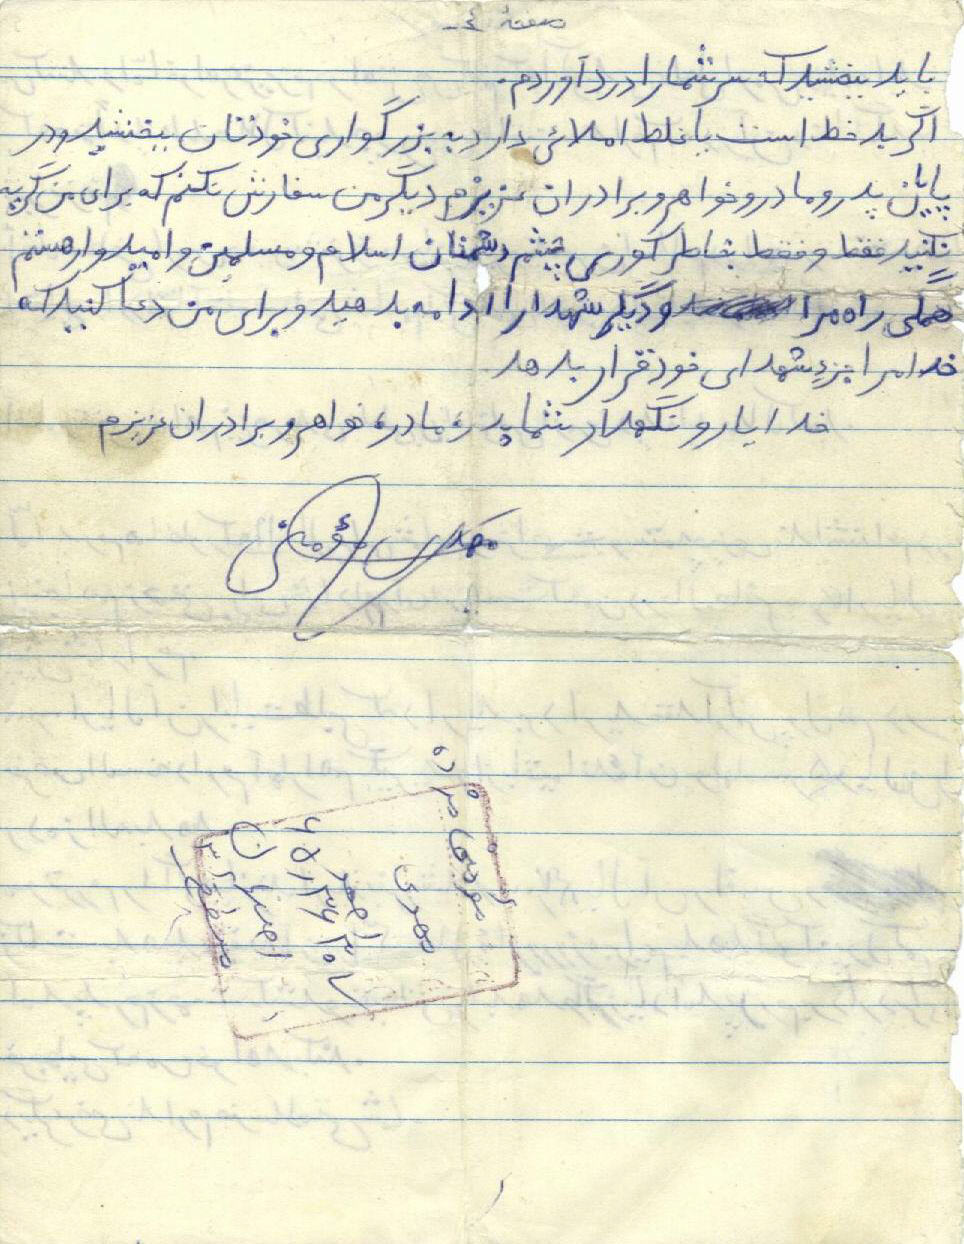 صفحهٔ ۴ـ
باید ببخشید که سر شما را درد آوردم.
اگر بد خط است یا غلط املائی دارد به بزرگواری خودتان ببخشید و در
پایان پدر و مادر و خواهر و برادران عزیزم دیگر من سفارش نکنم که برای من گریه
نکنید فقط و فقط بخاطر کوری چشم دشمنان اسلام و مسلمین و امیدوار هستم
همگی راه مرا و دیگر شهدا را ادامه بدهید و برای من دعا کنید که
خدا مرا جزء شهدای خود قرار بدهد
خدا یار و نگهدار شما پدر، مادر، خواهر و برادران عزیزم
مهدی مؤمنی
مهدی
احمد
اصفهان